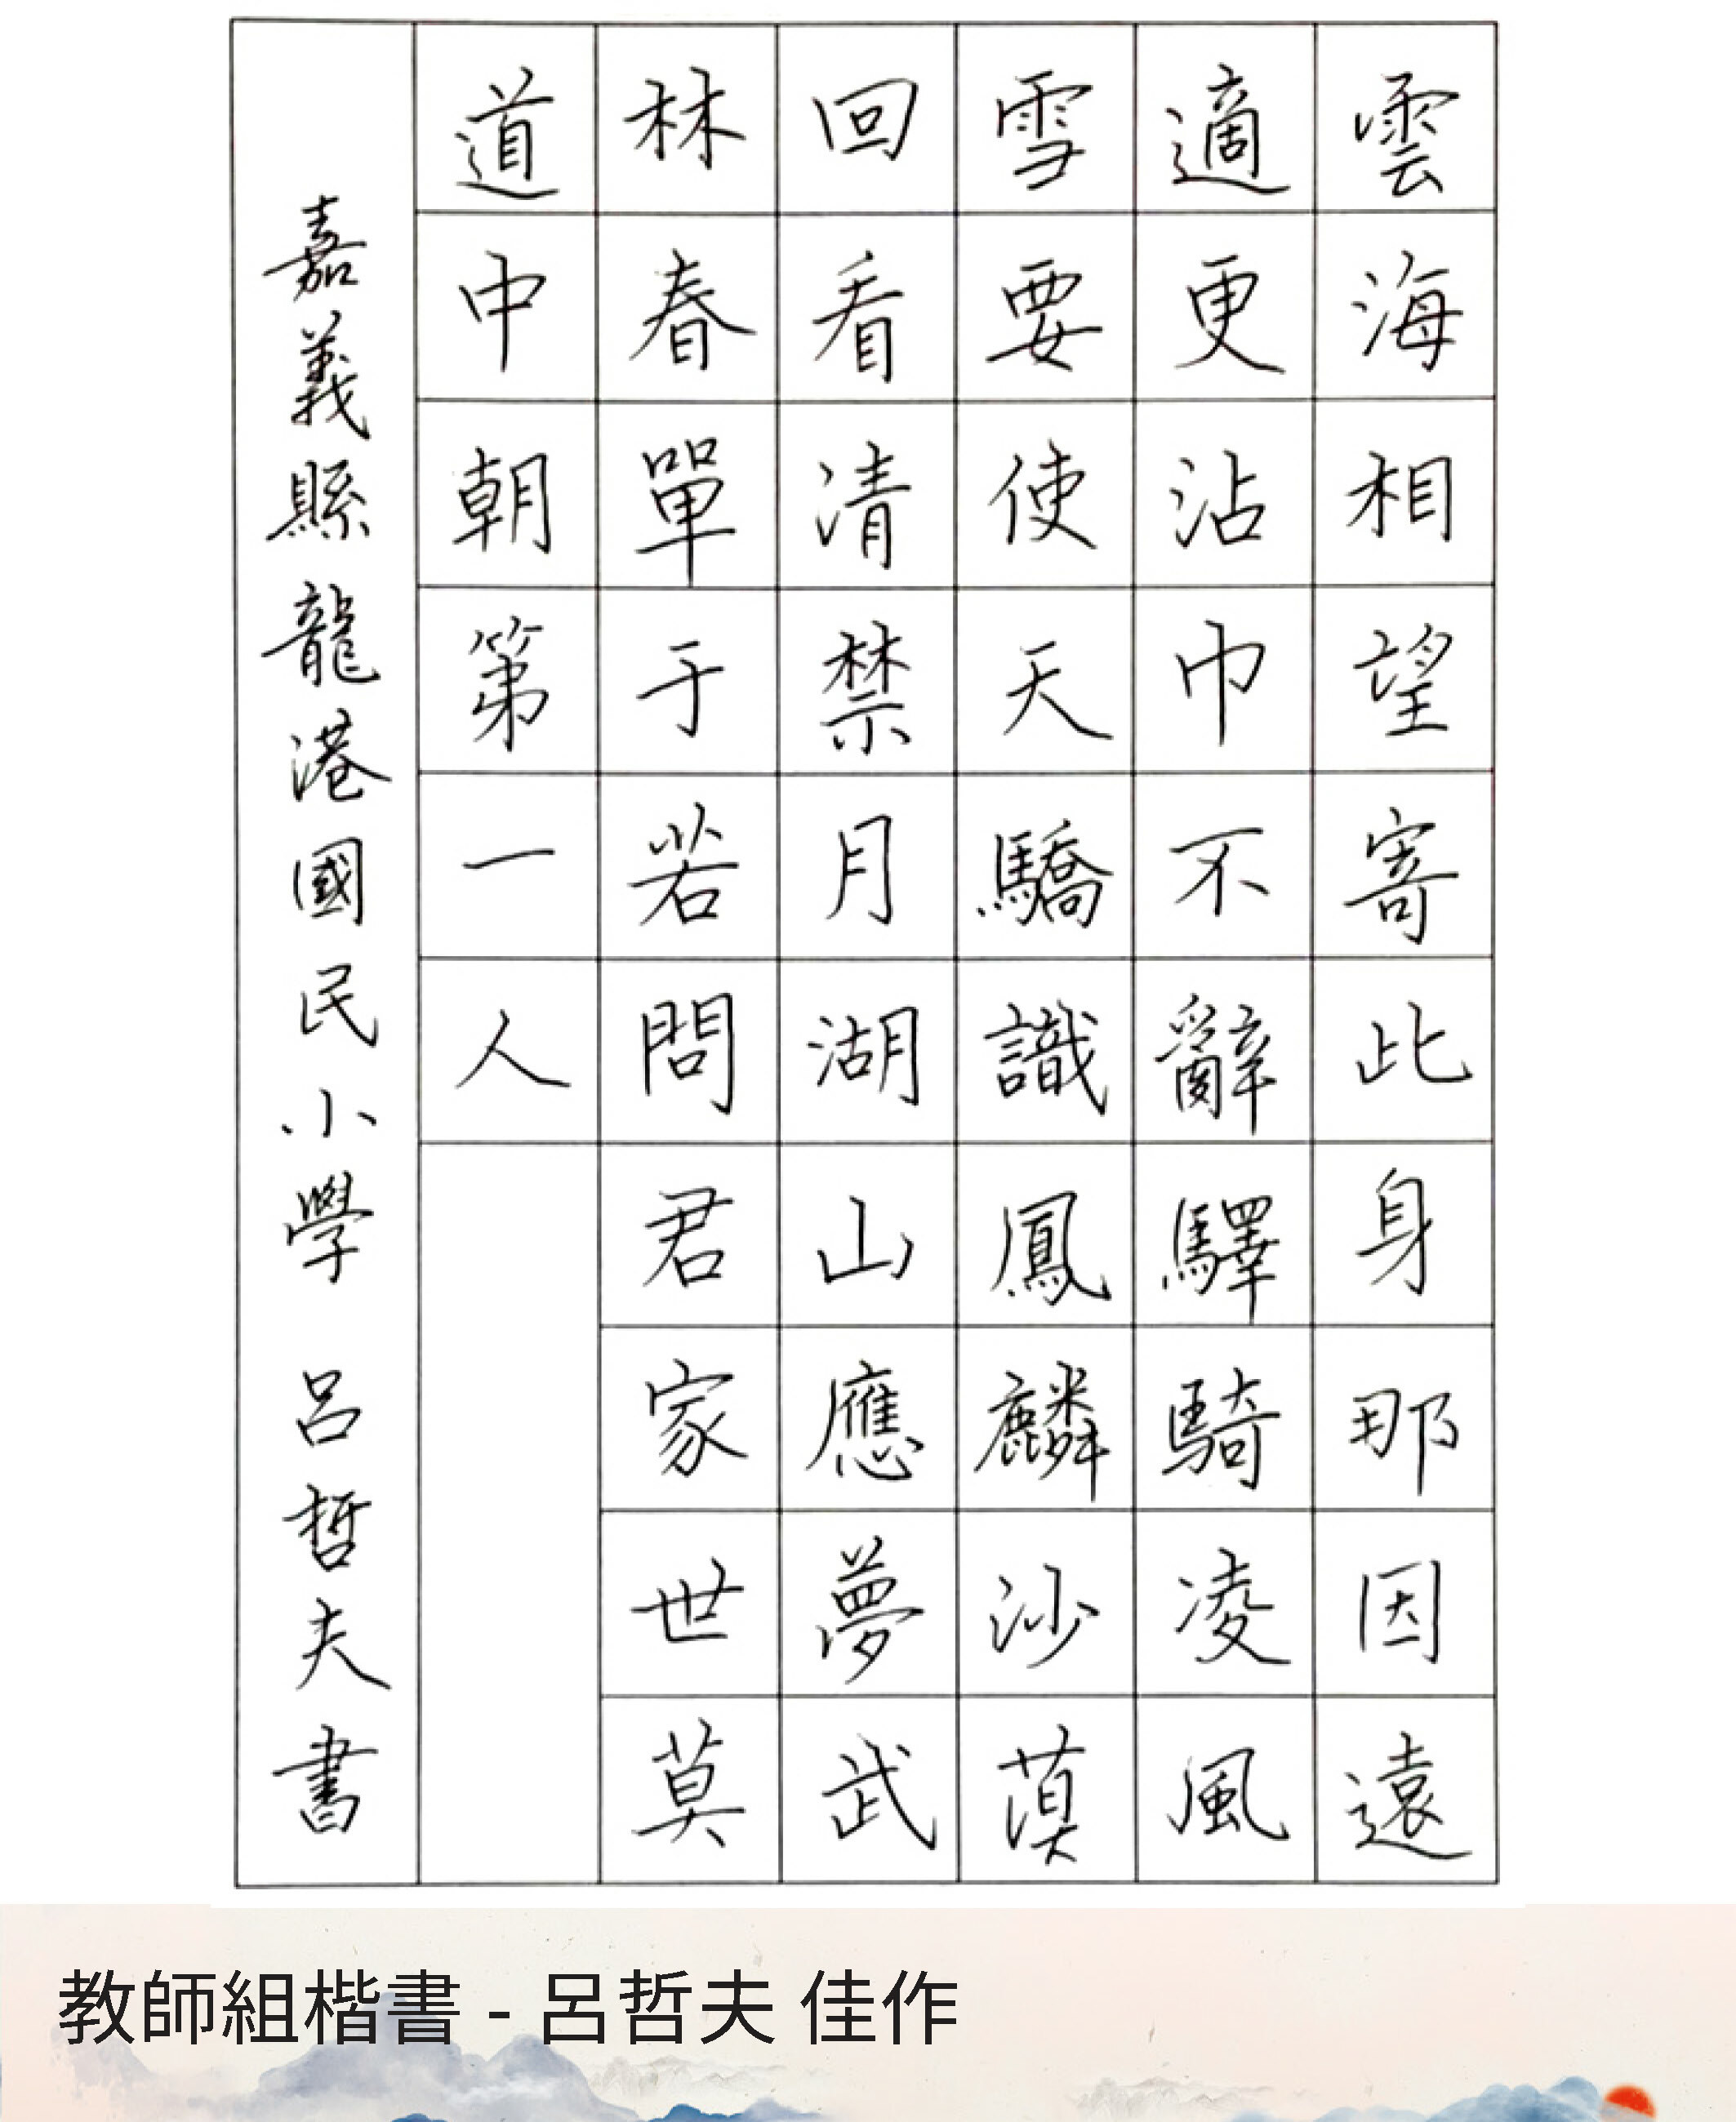 雲海相望寄此身那因遠
適更沾巾不辭驛騎凌風
雪要使天驕識鳳麟沙漠
回看清禁月湖山應夢武
林春單于若問君家世莫
道中朝第一人
嘉義縣龍港國民小學 呂哲夫書
教師組楷書 - 呂哲夫 佳作